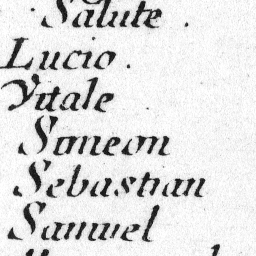 Salute .
Lucio .
Vitale
Simeon
Sebastian
Samuel